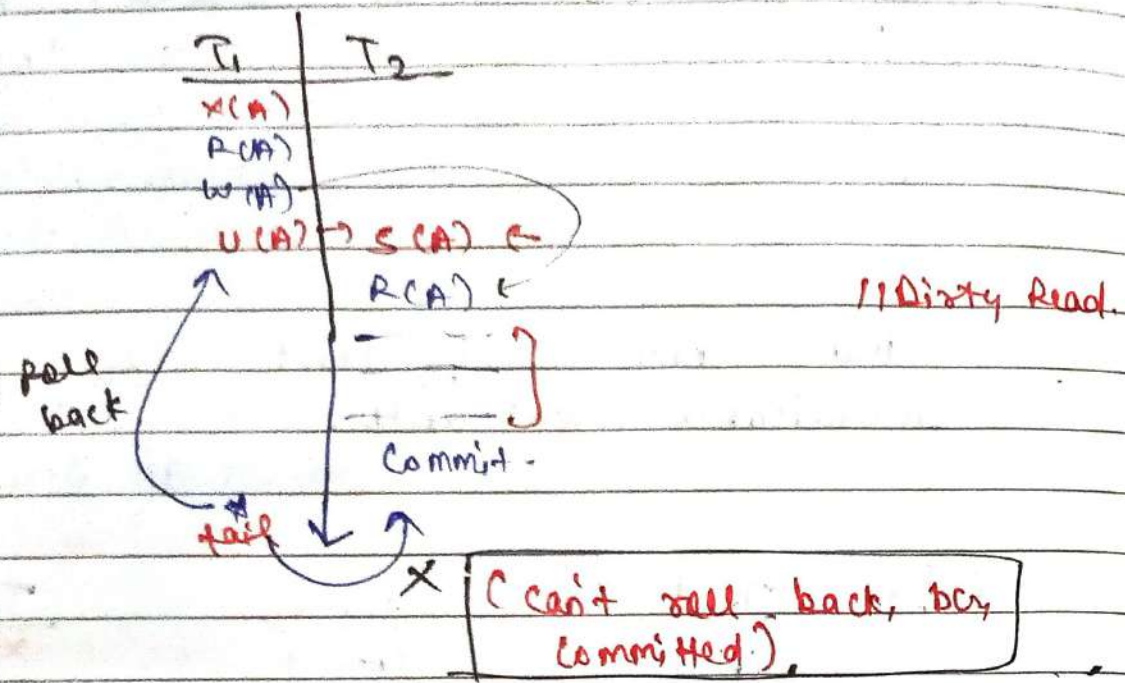 T1 T2
X(A)
R(A)
W(A)
U(A) → S(A) ←
R(A) ← //Dirty Read.
Roll
back
Commit.
* fail
X (can't roll back, bcz
committed).